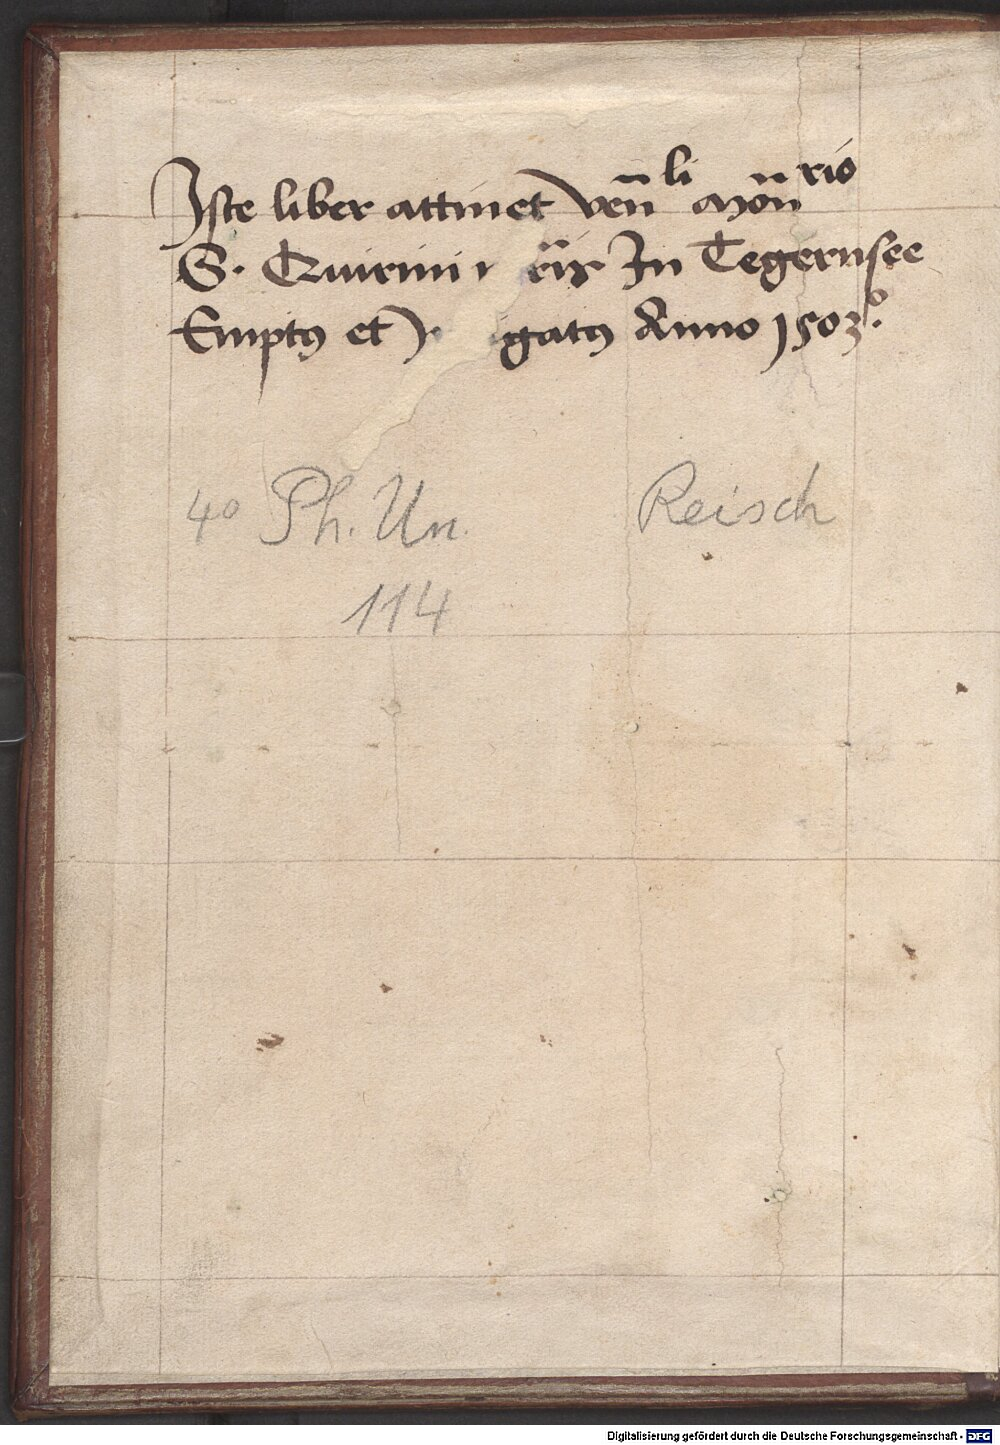 Iste liber attinet Ven̄li Mon̄rio
S. Quirini rīs In Tegernsee
Emptꝰ et gatꝰ Anno 1503°.
4° Ph. Un. Reisch
114
Digitalisierung gefördert durch die Deutsche Forschungsgemeinschaft - DFG